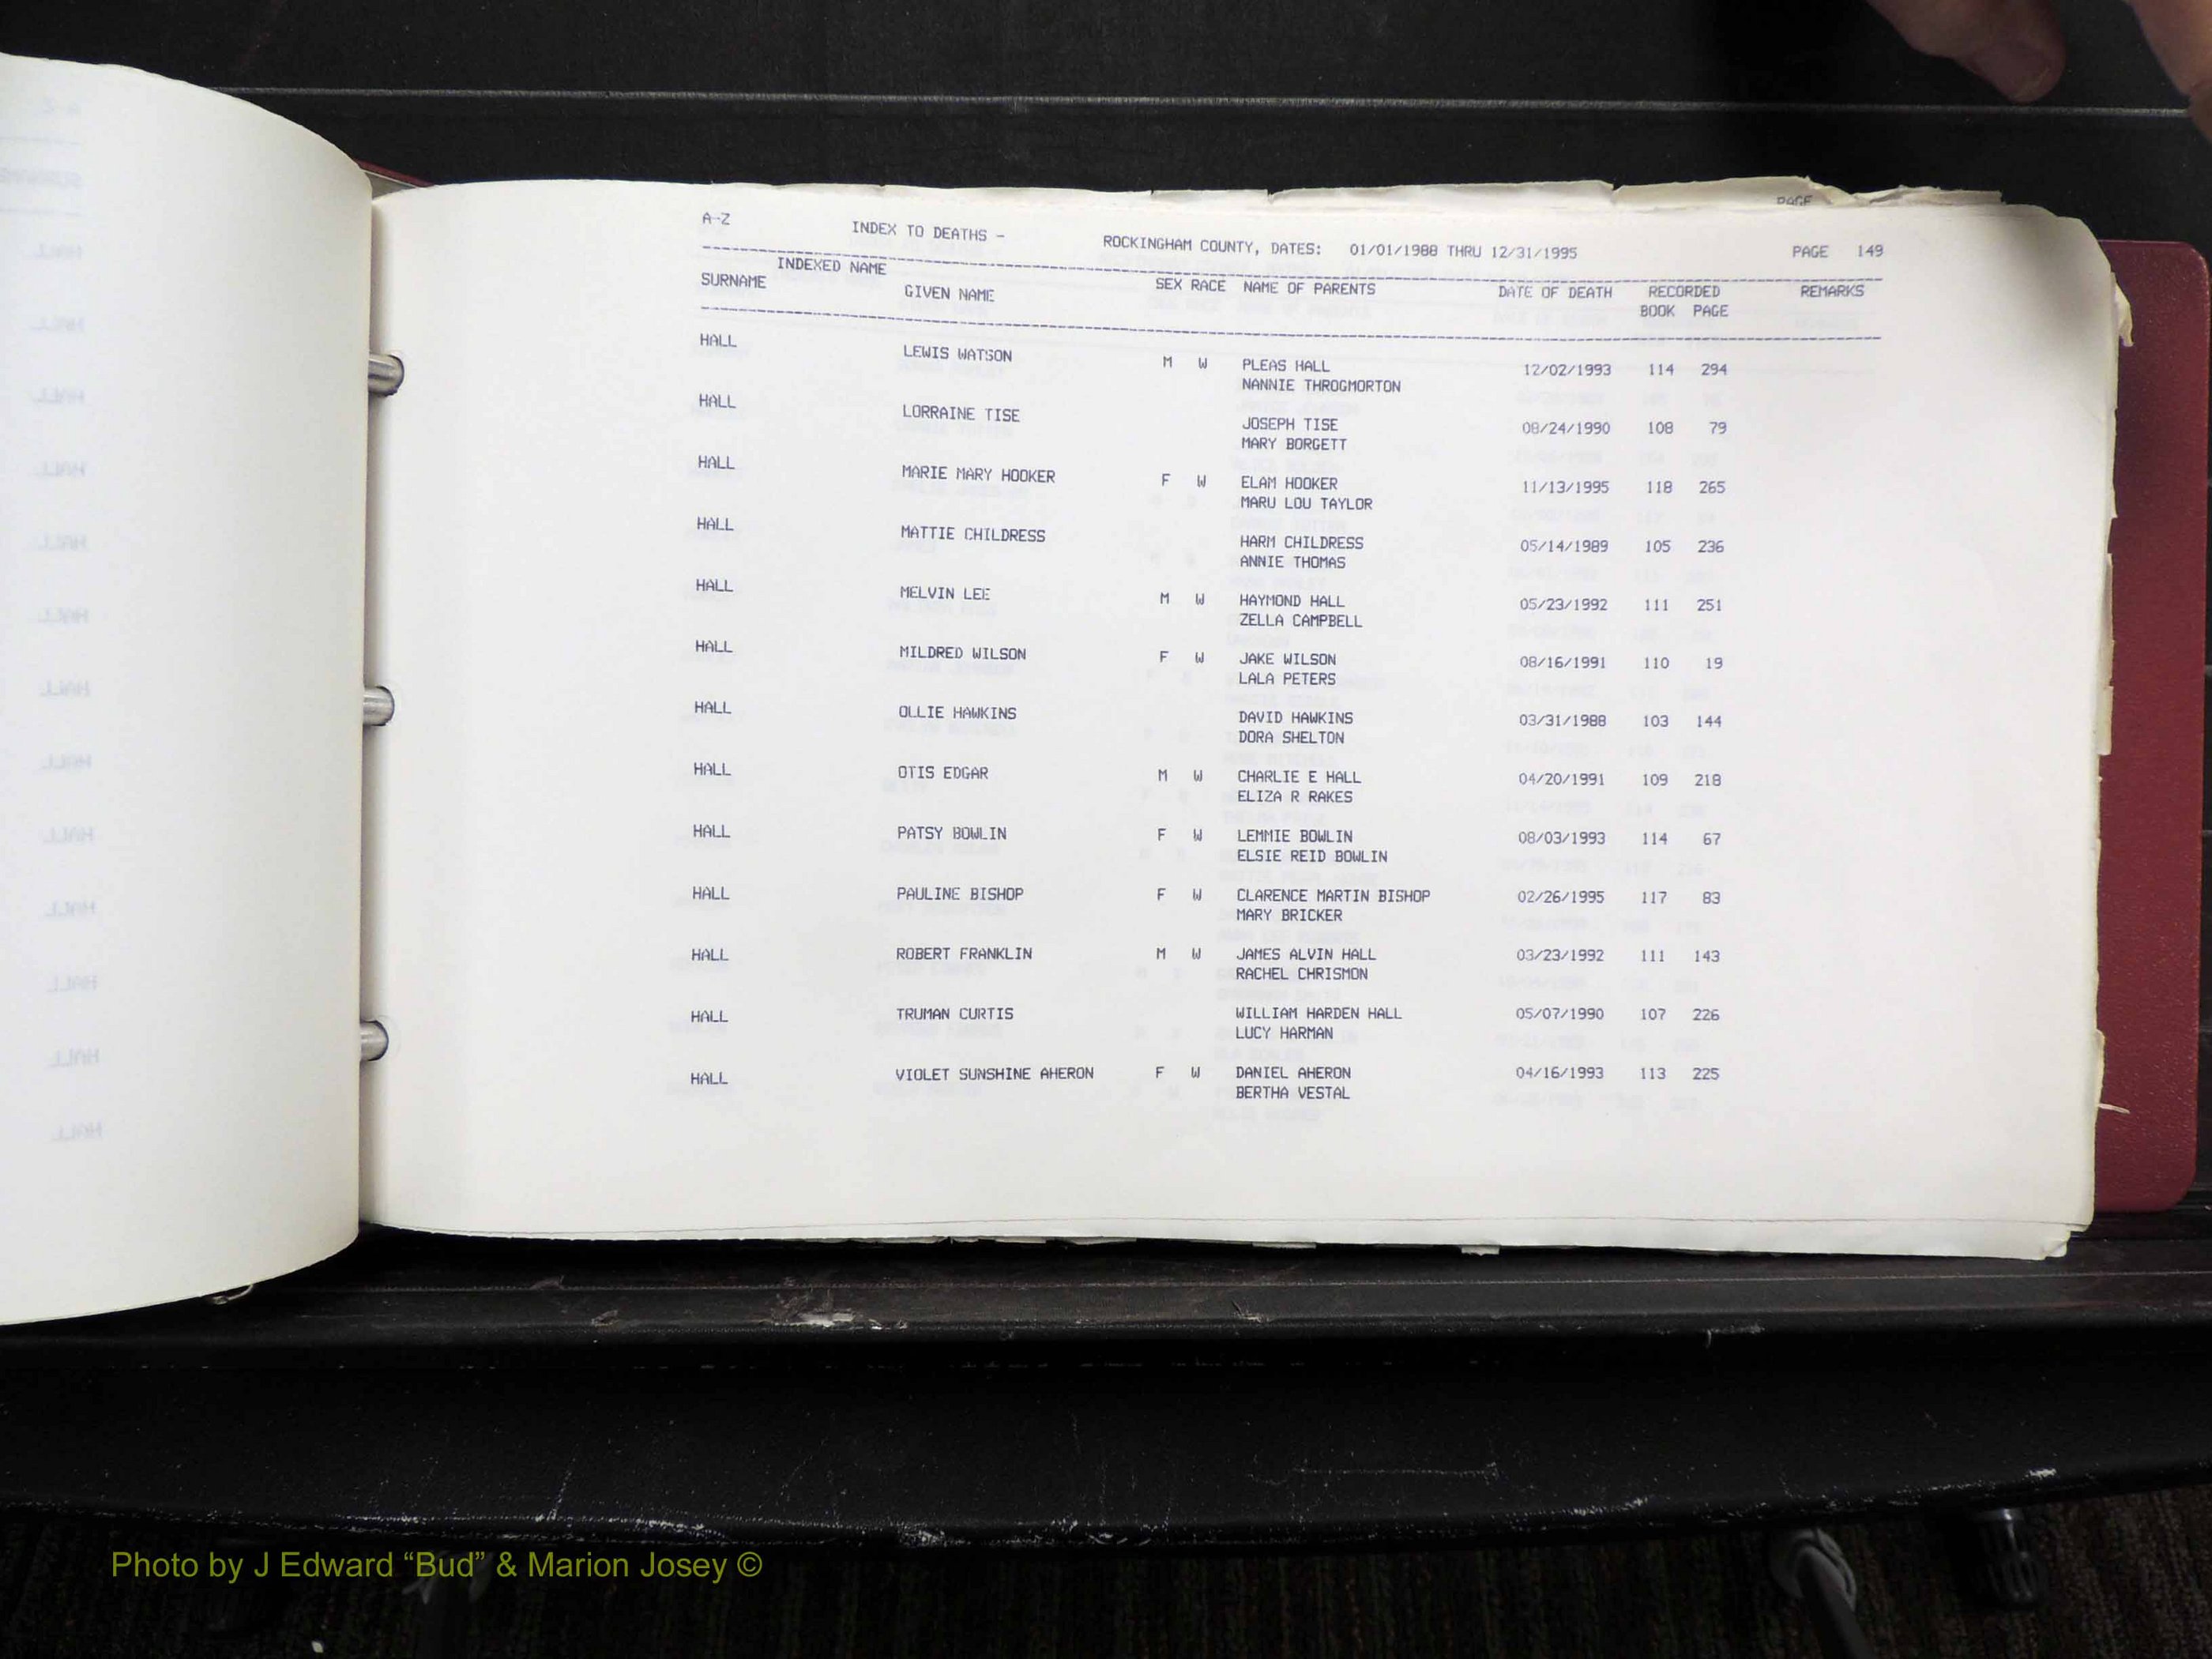 A-Z INDEX TO DEATHS - ROCKINGHAM COUNTY, DATES: 01/01/1988 THRU 12/31/1995 PAGE 149
INDEXED NAME
SURNAME GIVEN NAME SEX RACE NAME OF PARENTS DATE OF DEATH RECORDED REMARKS
BOOK PAGE
HALL LEWIS WATSON M W PLEAS HALL 12/02/1993 114 294
NANNIE THROGMORTON
HALL LORRAINE TISE JOSEPH TISE 08/24/1990 108 79
MARY BORGETT
HALL MARIE MARY HOOKER F W ELAM HOOKER 11/13/1995 118 265
MARU LOU TAYLOR
HALL MATTIE CHILDRESS HARM CHILDRESS 05/14/1989 105 236
ANNIE THOMAS
HALL MELVIN LEE M W HAYMOND HALL 05/23/1992 111 251
ZELLA CAMPBELL
HALL MILDRED WILSON F W JAKE WILSON 08/16/1991 110 19
LALA PETERS
HALL OLLIE HAWKINS DAVID HAWKINS 03/31/1988 103 144
DORA SHELTON
HALL OTIS EDGAR M W CHARLIE E HALL 04/20/1991 109 218
ELIZA R RAKES
HALL PATSY BOWLIN F W LEMMIE BOWLIN 08/03/1993 114 67
ELSIE REID BOWLIN
HALL PAULINE BISHOP F W CLARENCE MARTIN BISHOP 02/26/1995 117 83
MARY BRICKER
HALL ROBERT FRANKLIN M W JAMES ALVIN HALL 03/23/1992 111 143
RACHEL CHRISMON
HALL TRUMAN CURTIS WILLIAM HARDEN HALL 05/07/1990 107 226
LUCY HARMAN
HALL VIOLET SUNSHINE AHERON F W DANIEL AHERON 04/16/1993 113 225
BERTHA VESTAL
Photo by J Edward “Bud” & Marion Josey ©